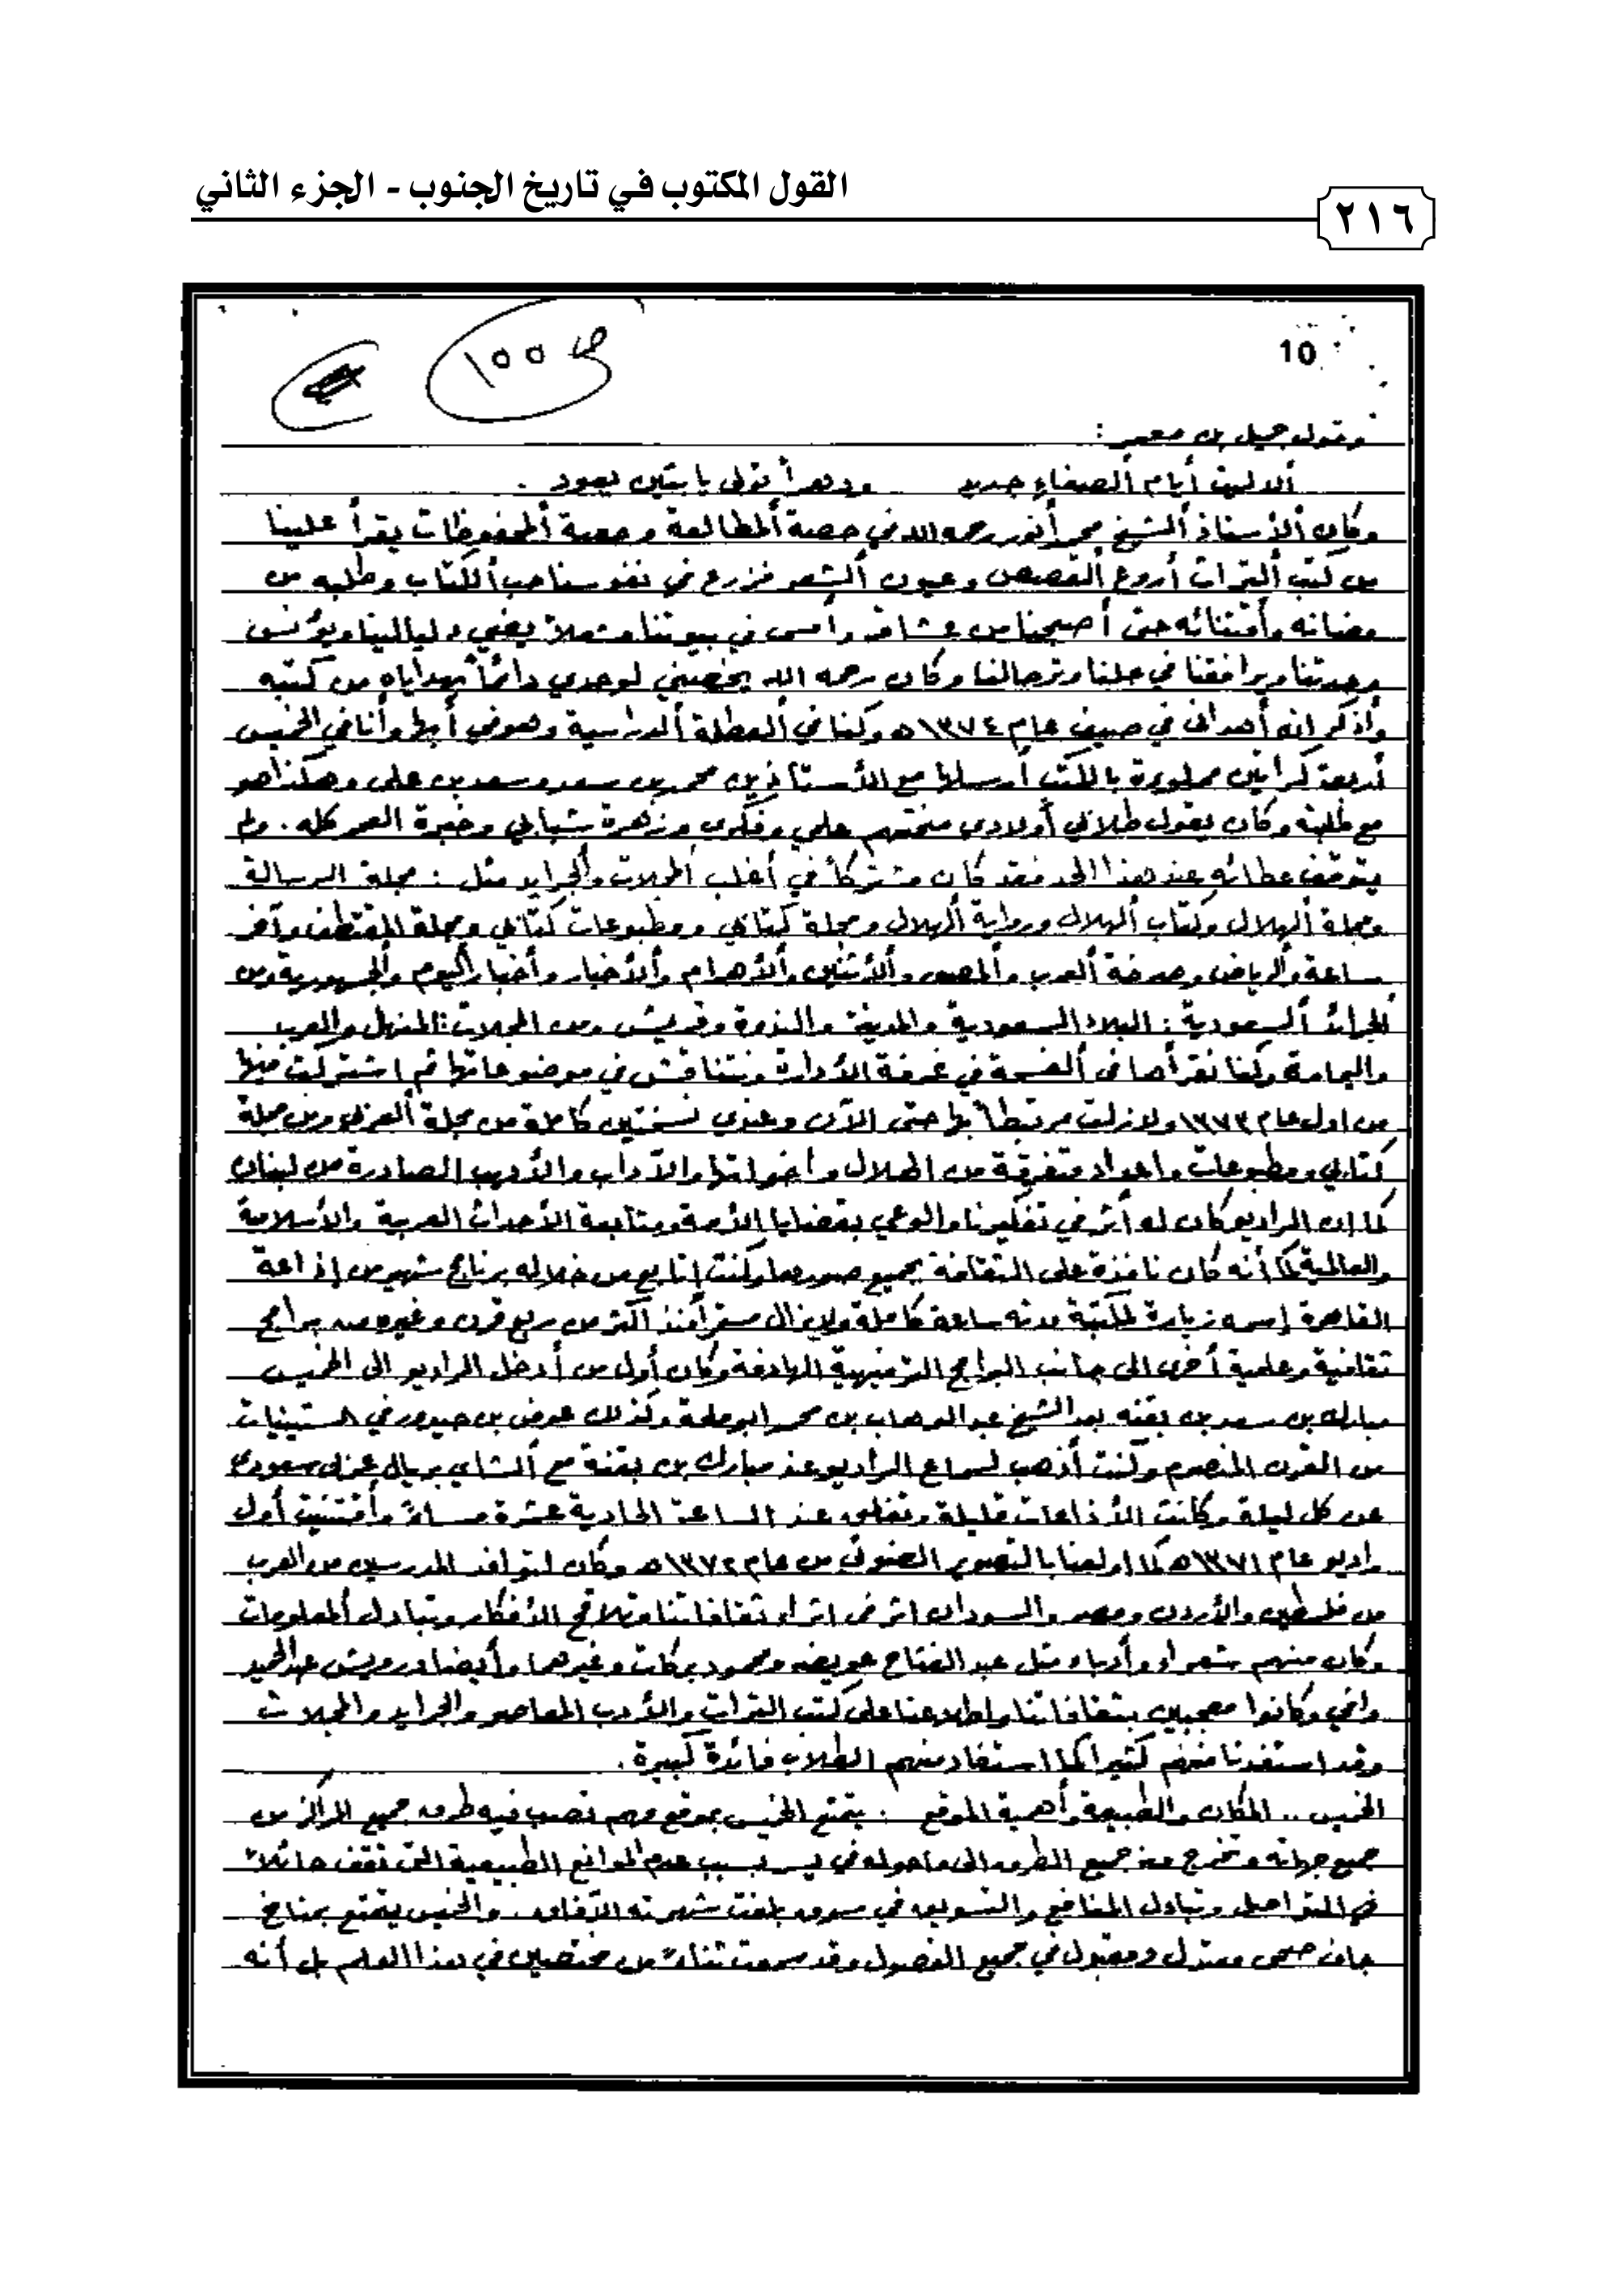 القول المكتوب في تاريخ الجنوب - الجزء الثاني
٢١٦
10
ص ١٥٥
وقول جميل بن معمر :
ألا ليت أيام الصفاء جديد ودهراً تولى يا بثين يعود .
وكان الأستاذ الشيخ محمد أنور رحمه الله في حصة المطالعة وحصة المحفوظات يقرأ علينا
من كتب التراث أروع القصص وعيون الشعر فزرع في نفوسنا حب الكتاب وطلبه من
مضانه وأقتنائه حتى أصبحنا من عشاقه وأمسى في بيوتنا مشعلاً يضيء ليالينا ويؤنس
وحدتنا ويرافقنا في حلنا وترحالنا وكان رحمه الله يخصني لوحدي دائماً بهداياه من كتبه
وأذكر انه أهداني في صيف عام ١٣٧٤ه وكنا في العطلة الدراسية وهو في أبها وأنا في الخميس
أربعة كراتين مملوءة بالكتب أرسلها مع الأستاذين محمد بن سعد وسعد بن علي وهكذا هو
مع طلبته وكان يقول طلابي أولادي منحتهم علمي وفكري وزهرة شبابي وخبرة العمر كله . ولم
يتوقف عطائه عند هذا الحد فقد كان مشتركاً في أغلب المجلات والجرايد مثل : مجلة الرسالة
ومجلة الهلال وكتاب الهلال ورواية الهلال ومجلة كتابي ومطبوعات كتابي ومجلة المقتطف وآخر
ساعة والرياض وصرخة العرب والمصور والأثنين والأهرام والأخبار وأخبار اليوم والجمهورية ومن
الجرائد السعودية : البلاد السعودية والمدينة والندوة وقريش ومن المجلات : المنهل والعرب
واليمامة وكنا نقرأها في الفسحة في غرفة الأدارة ونتناقش في موضوعاتها ثم اشتركت فيها
من اول عام ١٣٧٣ ولا زلت مرتبطاً بها حتى الآن وعندي نسختين كاملة من مجلة العربي ومن مجلة
كتابي ومطبوعات واعداد متفرقة من الهلال وأخواتها والآداب والأديب الصادرة من لبنان
كما ان الراديو كان له أثر في تفكيرنا والوعي بقضايا الأمة ومتابعة الأحداث العربية والأسلامية
والعالمية كما أنه كان نافذة على الثقافة بجميع صورها وكنت إتابع من خلاله برنامج شهير من إذاعة
القاهرة إسمه زيارة لمكتبة مدته ساعة كاملة ولا يزال مستمراً منذ أكثر من ربع قرن وغيره من برامج
ثقافية وعلمية أخرى الى جانب البرامج الترفيهية الهادفة وكان أول من أدخل الراديو الى الخميس
مبارك بن سعد بن بقنه بعد الشيخ عبد الوهاب بن محمد ابو ملحة وكذلك عوض بن حيدور في الستينات
من القرن المنصرم وكنت أذهب لسماع الراديو عند مبارك بن بقنة مع الشاي بريال عربي سعودي
عن كل ليلة وكانت الأذاعات قليلة وتغلق عند الساعة الحادية عشرة مساءً وأقتنيت أول
راديو عام ١٣٧١ه كما اولعنا بالتصوير الضوئي من عام ١٣٧٢ه وكان لتوافد المدرسين من العرب
من فلسطين والأردن ومصر والسودان اثر في اثراء ثقافاتنا وتلاقح الأفكار وتبادل المعلومات
وكان منهم شعراء وأدباء مثل عبد الفتاح عويضه ومحمود بركات وغيرهما وأيضا درويش عبد الحميد
وافي وكانوا معجبين بثقافاتنا واطلاعنا على كتب التراث والأدب المعاصر والجرايد والمجلات
وقد استفدنا منهم كثيرا كما استفاد منهم الطلاب فائدة كبيرة .
الخميس .. المكان والطبيعة وأهمية الموقع : يتمتع الخميس بموقع مهم تصب فيه طرق جميع المراكز من
جميع جهاته وتخرج منه جميع الطرق الى ماحوله في يسر بسبب عدم الموانع الطبيعية التي تقف حائلاً
في التواصل وتبادل المنافع والتسويق في سوق بلغت شهرته الآفاق . والخميس يتمتع بمناخ
جاف صحي معتدل ومقبول في جميع الفصول وقد سمعت ثناءً من مختصين في هذا العلم بل أنه